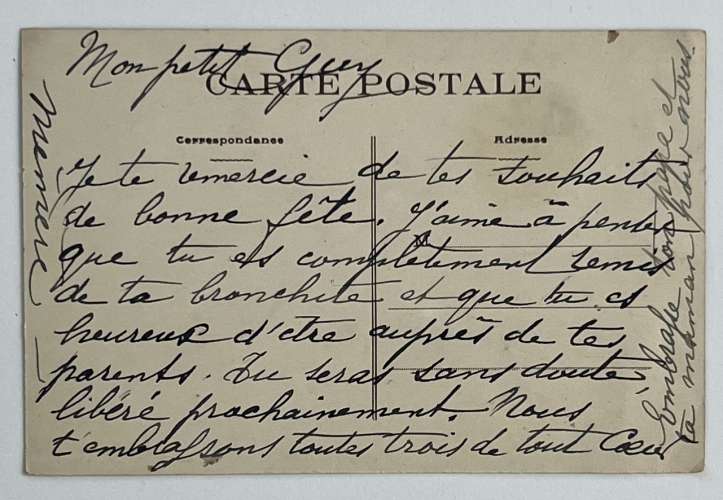 Mon petit Guy
CARTE POSTALE
Correspondance
Adresse
Je te remercie de tes souhaits
de bonne fête. J'aime à penser
que tu es complètement remis
de ta bronchite et que tu es
heureux d'être auprès de tes
parents. Tu seras sans doute,
libéré prochainement. Nous
t'embrassons toutes trois de tout Cœur
Embrasse ton papa et
ta maman pour nous.
Memère